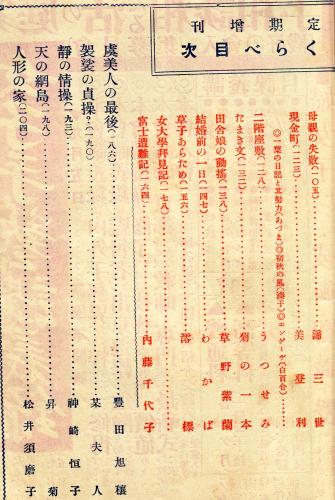 定期増刊
くらべ目次
母親の失敗(一〇五)……諦三世
現金町(一二三)……美登利
◎一葉の日記と其努力(あづき)◎初秋の風(湊子)◎エンゲーヂ(白百合)
二階座敷(一二八)……うつせみ
たまき文(一三二)……菊の一本
田舎娘の動揺(一三八)……草野紫蘭
結婚前の一日(一四七)……わかば
草子あらため(一五六)……澪標
女大學拜見記(一七八)
富士遭難記(一六四)……内藤千代子
虞美人の最後(一八六)……豐田旭穰
袈裟の貞操?(一九〇)……某夫人
靜の情操(一九三)……神崎恒子
天の網島(一九八)……昇菊
人形の家(二〇四)……松井須磨子